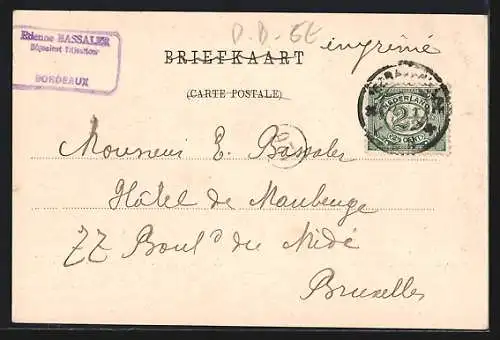 D.D-6E
imprimé
Etienne BASSALER
BORDEAUX
BRIEFKAART
(CARTE POSTALE)
NEDERLAND
2½
CENT
Monsieur E. Bassaler
Hôtel de Maubeuge
77 Boulᵈ du Midi
Bruxelles